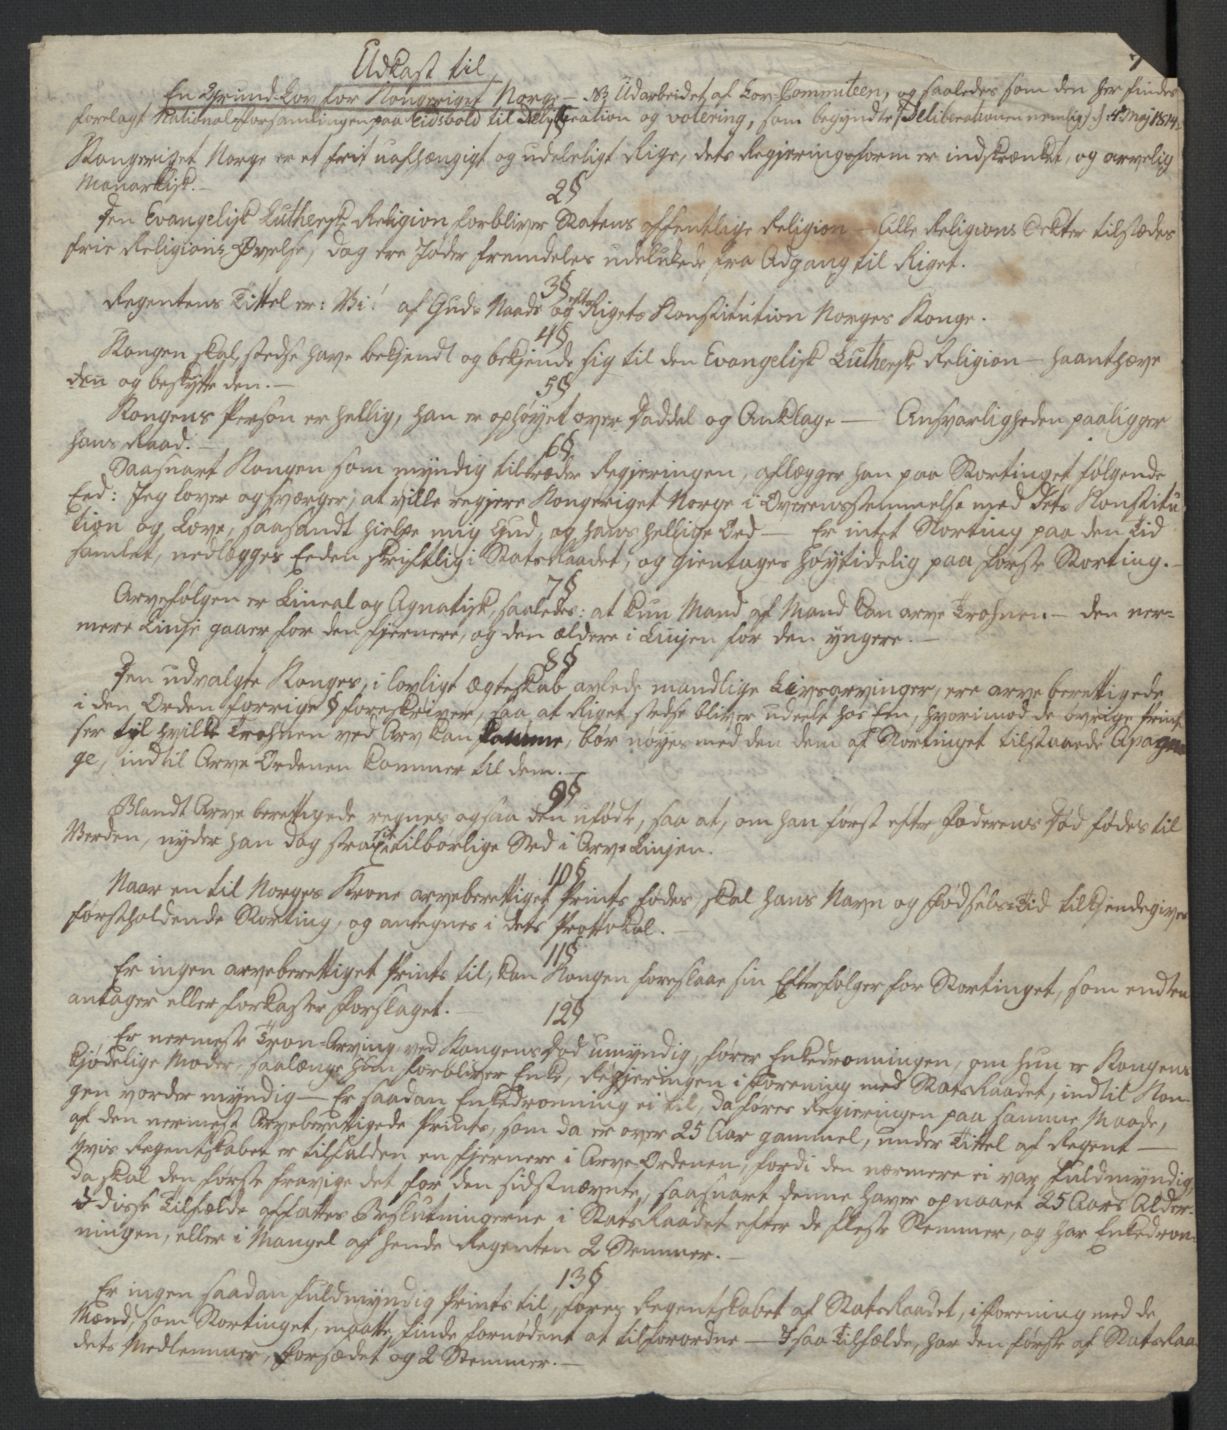 Udkast til
En Grund-Lov for Kongeriget Norge — NB Udarbeidet af Lov-Committeen, og saaledes som den her findes
forelagt Nationalforsamlingen paa Eidsvold til Deliberation og votering, som begyndte (Deliberationen nemlig) :/: 4 Maj 1814.
Kongeriget Norge er et frit uafhængigt og udeleligt Rige, dets Regjeringsform er indskrænket, og arvelig
Monarkisk.—
2§
Den Evangelisk Lutherske Religion forbliver Statens offentlige Religion — Alle Religions Sekter tilstædes
frie Religions Øvelse, dog ere Jøder fremdeles udelukkede fra Adgang til Riget.
3§
Regentens Tittel er: Vi! af Guds Naade og efter Rigets Konstitution Norges Konge.
4§
Kongen skal stedse have bekjendt og bekjende sig til den Evangelisk Lutherske Religion — haanthæve
den og beskytte den.—
5§
Kongens Person er hellig, han er ophøyet over Daddel og Anklage — Ansvarligheden paaligger
hans Raad.—
6§
Saasnart Kongen som myndig tiltræder Regjeringen, aflægger han paa Stortinget følgende
Eed: Jeg lover og sværger, at ville regjere Kongeriget Norge i Overensstemmelse med dets Konstitu
tion og Love, saasandt hielpe mig Gud og hans hellige Ord — Er intet Storting paa den Tid
samlet, nedlægges Eeden skriftlig i Stats Raadet, og gientages høytidelig paa første Storting.—
7§
Arvefølgen er Lineal og Agnatisk, saaledes: at kun Mand af Mand kan arve Trohnen — den ner=
mere Linje gaaer for den fjernere, og den ældere i Linjen for den yngere.—
8§
Den udvalgte Konges, i lovligt Ægteskab avlede mandlige Livsarvinger, ere arveberettigede
i den Orden forrige § foreskriver, saa at Riget stedse bliver udeelt hos Een, hvorimod de øvrige Print
ser til hvilke Trohnen ved Arv kan komme, bør nøyes med den dem af Stortinget tilstaaede Apagna
ge, indtil Arve Ordenen kommer til dem.—
9§
Blandt Arveberettigede regnes ogsaa den ufødt, saa at, om han først efter Faderens Død fødes til
Verden, nyder han dog strax sit tilbørlige Sted i Arve Linjen.
10§
Naar en til Norges Krone arveberettiget Prints fødes, skal hans Navn og Fødsels=Tid tilkjendegives
førstholdende Storting, og antegnes i dets Prottokol.—
11§
Er ingen arveberettiget Prints til, kan Kongen foreslaae sin Efterfølger for Stortinget, som endten
antager eller forkaster Forslaget.—
12§
Er nermeste Tron=Arving ved Kongens Død umyndig, fører Enkedronningen, om hun er Kongens
kjødelige Moder, saalænge hun forbliver Enke, Regjeringen i Forening med Stats Raadet, indtil Kon=
gen vorder myndig — Er saadan Enkedronning ei til, da føres Regieringen paa samme Maade,
af den nermest Arveberettigede Prints, som da er over 25 Aar gammel, under Tittel af Regent —
Hvis Regentskabet er tilfalden en fjernere i Arve=Ordenen, fordi den nærmere ei var fuldmyndig,
da skal den første fravige det for den sidstnævnte, saasnart denne haver opnaaet 25 Aars Alder.
I disse Tilfælde affattes Beslutningerne i Stats Raadet efter de fleste Stemmer, og har Enkedron=
ningen, eller i Mangel af hende Regenten 2 Stemmer.—
13§
Er ingen saadan fuldmyndig Prints til, føres Regentskabet af Stats Raadet, i Forening med de
Mænd, som Stortinget, maatte, finde fornødent at tilforordne — I saa Tilfælde, har den første af Stats Raa
dets Medlemmer, Forsædet og 2 Stemmer.—